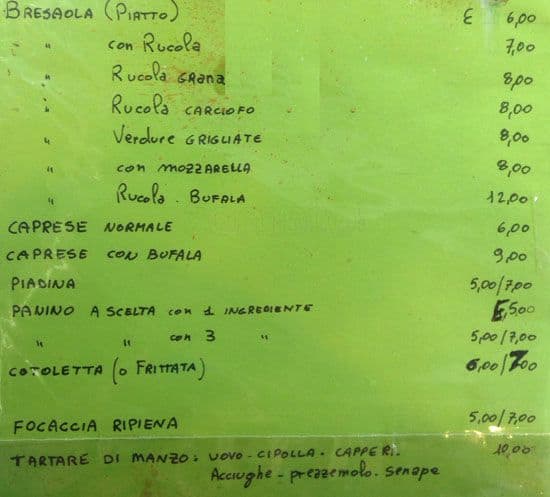 BRESAOLA (PIATTO) € 6,00
" con Rucola 7,00
" Rucola GRANA 8,00
" Rucola CARCIOFO 8,00
" Verdure GRIGLIATE 8,00
" con mozzarella 8,00
" Rucola. BUFALA 12,00
CAPRESE NORMALE 6,00
CAPRESE CON BUFALA 9,00
PIADINA 5,00/7,00
PANINO A SCELTA con 1 INGREDIENTE 5,00
" " con 3 " 5,00/7,00
COTOLETTA (o FRITTATA) 6,00/7,00
FOCACCIA RIPIENA 5,00/7,00
TARTARE DI MANZO: UOVO - CIPOLLA - CAPPERI. 10,00
Acciughe - prezzemolo - senape